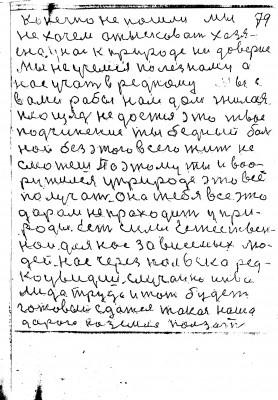 Конечно не пошли мы 79
не хочем отысковать хозя-
ена. У нас к природе ни доверие
мы не учемся полезному а
нас учат вредному мы с
вами рабы нам дом жилая
площадь не достся это твое
подчинение ты бедный бол
ной без этого всего жит не
сможеш Поэтому ты и воо-
ружился у природе это всё
получат. Она тебя все это
даром не проходит у при-
роды. Ест силы Естествен-
ной. для нас зависемых лю-
дей. нас через полвека ред-
ко увидиш случайно инва
лида труда и тот будет
готовый сдатся такая наша
дорога по земле ползат